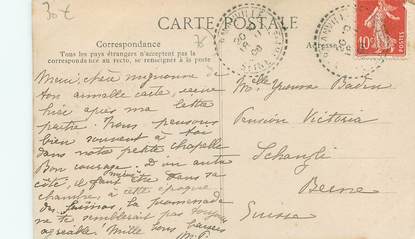 30 €
CARTE POSTALE
Correspondance
Adresse
Tous les pays étrangers n'acceptent pas la
correspondance au recto, se renseigner à la poste
10
Merci, chère mignonne de
ton aimable carte, reçue
hier après ma lettre
partie. Nous pensons
bien souvent à toi
dans notre petite chapelle
Bon courage. D'un autre
côté, il faut être dans ta
chambre, à cette époque
des frimas, la promenade
ne te semblerait pas toujours
agréable. Mille bons baisers
Mlle Yvonne
Pension Victoria
Schangli
Berne
Suisse